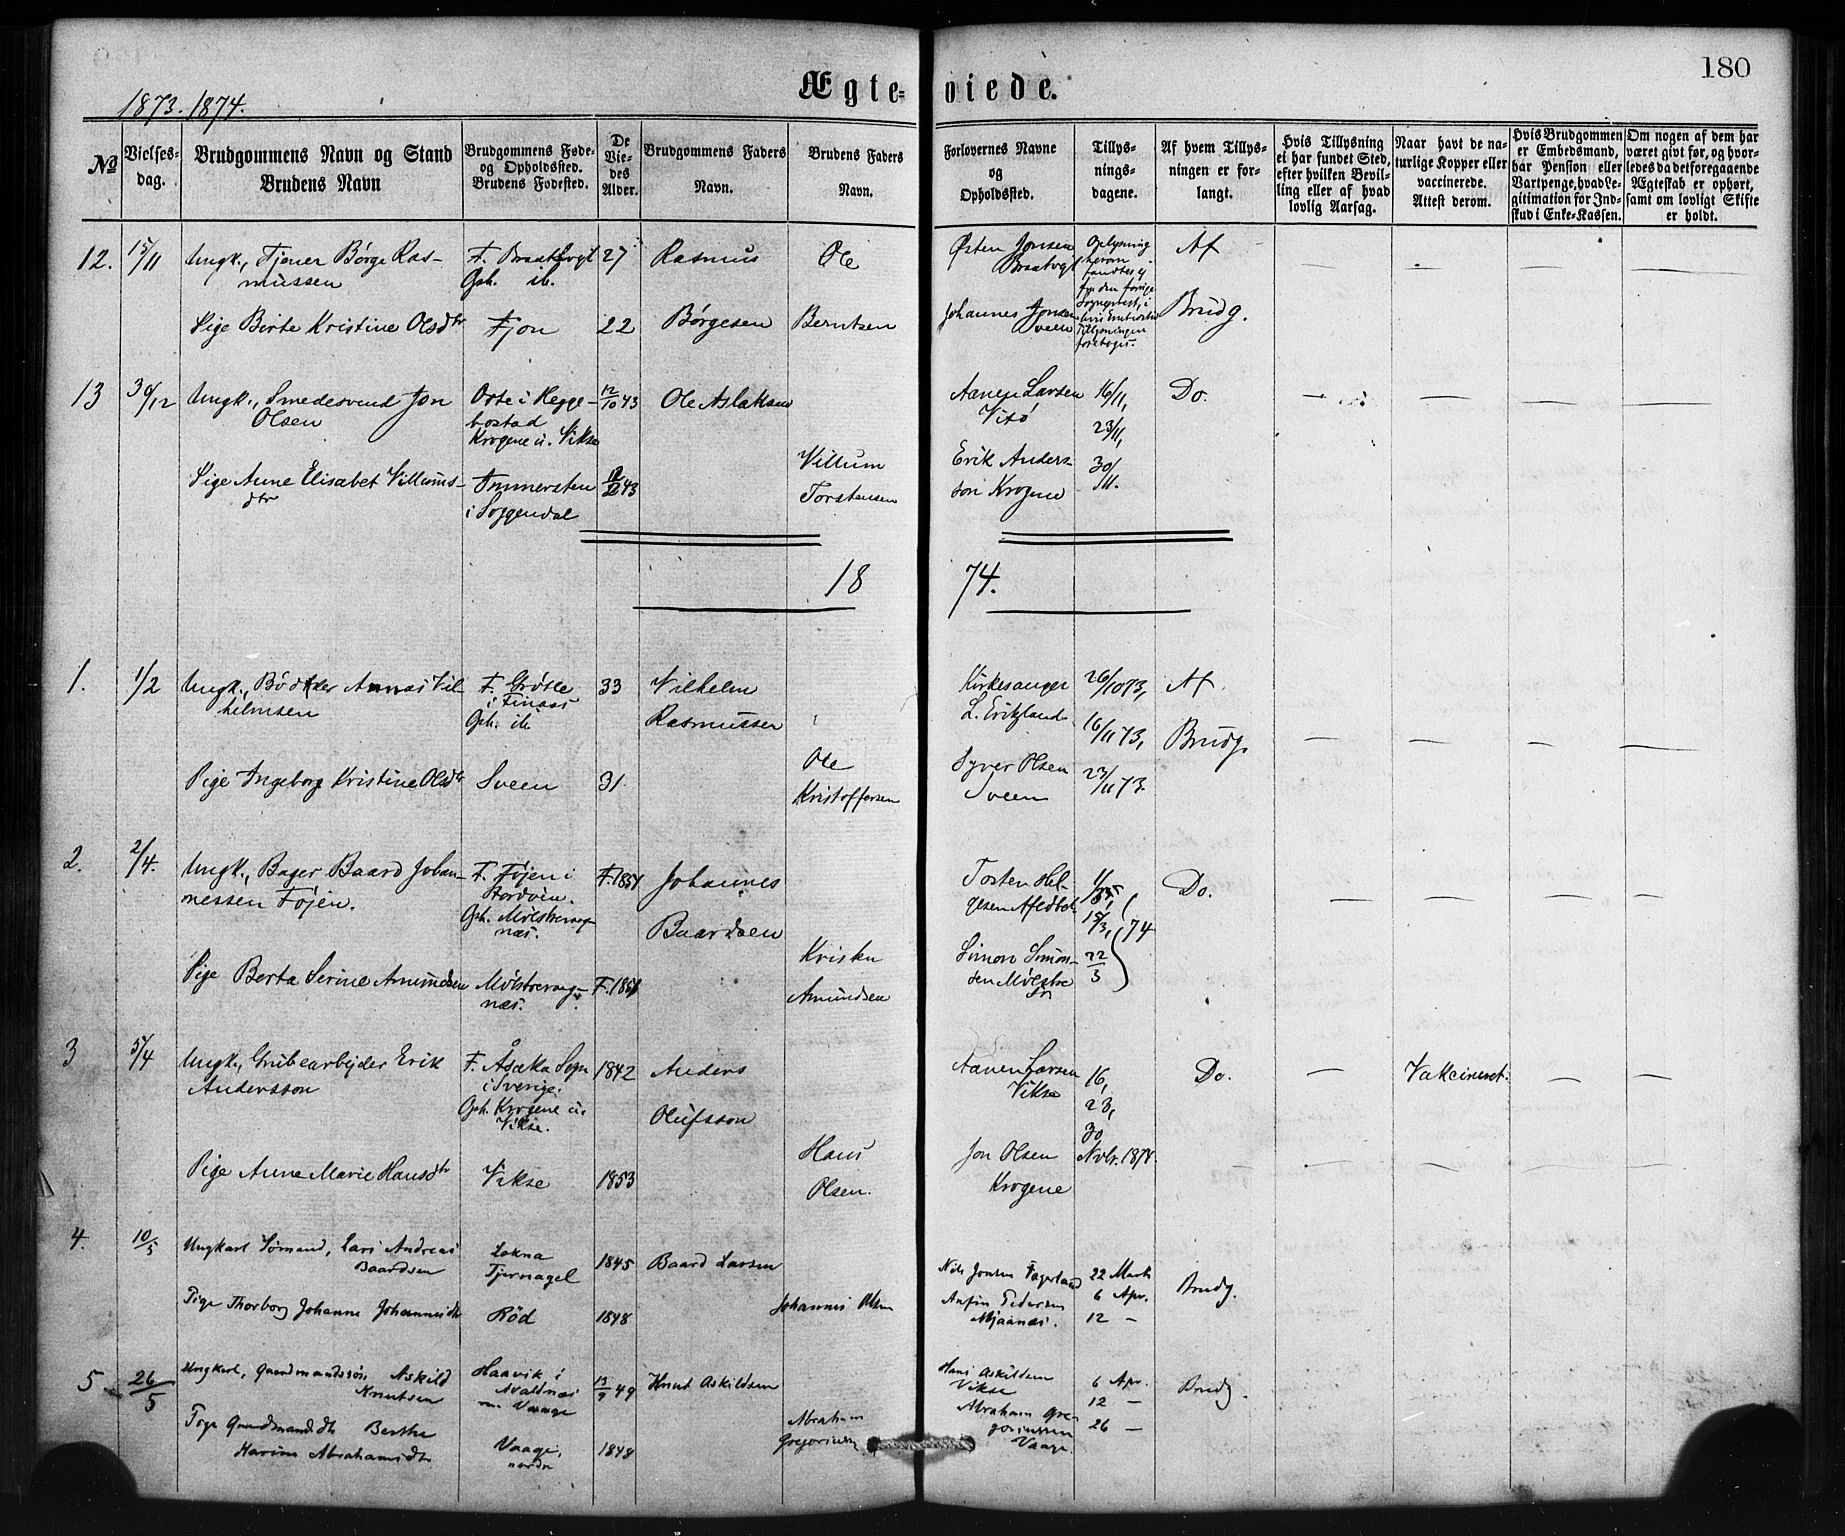 180
Ægte-viede.
1873. 1874.
No
Vielses-dag.
Brudgommens Navn og Stand
Brudens Navn
Brudgommens Føde-
og Opholdssted.
Brudens Fødested.
De
Vie-
des
Alder.
Brudgommens Faders
Navn.
Brudens Faders
Navn.
Forlovernes Navne
og
Opholdssted.
Tillys-
nings-
dagene.
Af hvem Tillys-
ningen er for-
langt.
Hvis Tillysning
ei har fundet Sted,
efter hvilken Bevil-
ling eller af hvad
lovlig Aarsag.
Naar havt de na-
turlige Kopper eller
vaccinerede.
Attest derom.
Hvis Brudgommen
er Embedsmand,
har Pension eller
Vartpenge, hvad Le-
gitimation for Ind-
skud i Enke-Kassen.
Om nogen af dem har
været givt før, og hvor-
ledes da det foregaaende
Ægteskab er ophørt,
samt om lovligt Skifte
er holdt.
12. 15/11 Ungk., Tjener Børge Ras-
mussen
F. Braatvgt
Oph. ib.
27 Rasmus
Børgesen
Østen Jonsen
Braatvgt
Oplysning
herom
fandtes ej
Af
Brudg.
Pige Berte Kristine Olsdtr Fjon 22
Ole
Berntsen
Johannes Jonsen
Sveen
13 30/12 Ungk., Smedesvend Jon
Olsen
Orte i Hegge-
bostad
Krogene u. Vikse
12/10 43 Ole Aslaksen
Larsen
Visø
16/11,
23/11,
30/11.
Do.
Pige Anne Elisabet Villums-
dtr
i Soggendal
43
Villum
Torstensen
Erik Anders-
son Krogene
18 74.
1. 1/2 Ungk., Bødker Annas Vil-
helmsen
F. Grøtle
i Finaas
Oph. ib.
33 Vilhelm
Rasmussen
Kirkesanger
L. Eriksland
26/10 73,
16/11 73,
23/11 73.
Af
Brudg.
Pige Ingeborg Kristine Olsdtr Sveen 31.
Ole
Kristoffersen
Syver Olsen
Sveen
2. 2/4. Ungk., Bager Baard Johan-
nessen Føjen.
F. Føjen i
Stordøen.
Oph. Mølstrevaag-
næs.
F. 1851 Johannes
Baardsen
Tosten Hel-
gesen
15/3, 74
22/3
Do.
Pige Berta Serine Amundsen Mølstrevaag-
næs.
F. 1851
Kristen
Amundsen
Simon Simon-
sen Mølstre
3 5/4 Ungk., Grubearbejder Erik
Andersson
F. Åsaka Sogn
i Sverige.
Oph. Krogene u.
Vikse.
1842 Anders
Olufsson
Larsen
Vikse
16,
23,
30
Novbr. 1874.
Do.
Vakcineret.
Pige Anne Marie Hansdtr Vikse 1853
Hans
Olsen.
Jon Olsen
Krogene
4. 10/5 Ungkarl Sømand, Lars Andreas
Baardsen
Lokna
Tjernagel
1845 Baard Larsen
Nils Jonsen Fagerland
22 Marts
6 Apr.
12 —
Brudg.
Pige Thorborg Johanne Johannisdtr Rød 1848
Johannis Olsen
Anfin Pedersen
Mjaanæs.
5. 26/5 Ungkarl, Gaardmandssøn Askild
Knutsen
Haavik i
Avaldsnæs
Vaage
13/9 49 Knut Askildsen
Hans Askildsen
Vikse
6 Apr.
12 —
26 —
Brudg.
Pige Gaardmandsdtr Berthe
Abrahamsdtr
Vaage,
nordre
1848
Abraham
Gregoriussen
Abraham Gre-
goriussen
Vaage.